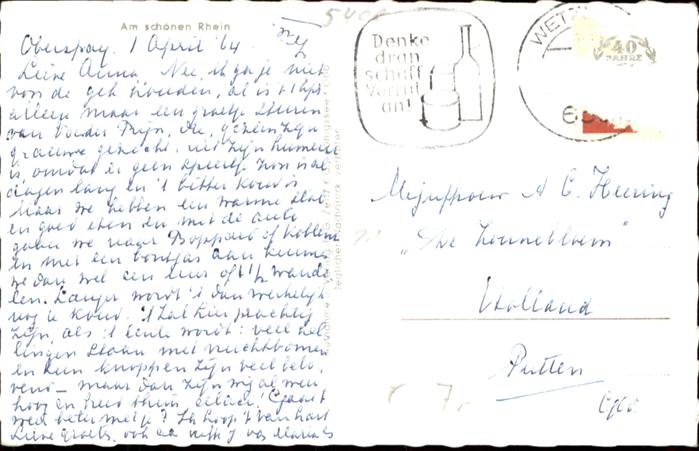 Am schönen Rhein
Oberspay. 1 April '64
Lieve Anna, Nee, ik ga je niet
voor de gek houden, al is 't 1 Apr.
alleen maar een groetje sturen
van Vader Rijn, die, gezien zijn
grauwe gezicht, niet zijn humeur
is, omdat er geen spiertje zon is al
dagen lang en 't bitter koud is
Maar we hebben een warme
en goed eten en met de auto
gaan we naar Boppard of Koblenz
en met een bontjas aan kunnen
we dan wel een uur of 1½ wande
len. Langer wordt 't dan werkelijk
nog te koud. 't Zal hier prachtig
zijn, als 't lente wordt: veel hel
lingen staan met vruchtbomen
en hun knoppen zijn veel belo
vend — maar dan zijn wij al weer
hoog en breed thuis, helaas! Gaat 't
weer beter met je? Ik hoop 't van hart
Lieve groets, ook aa
Denke
dran
schaff
Vorrat
an!
WET
40
JAHRE
Mejuffrouw A C. Heering
"De Zonnebloem"
Holland
Putten